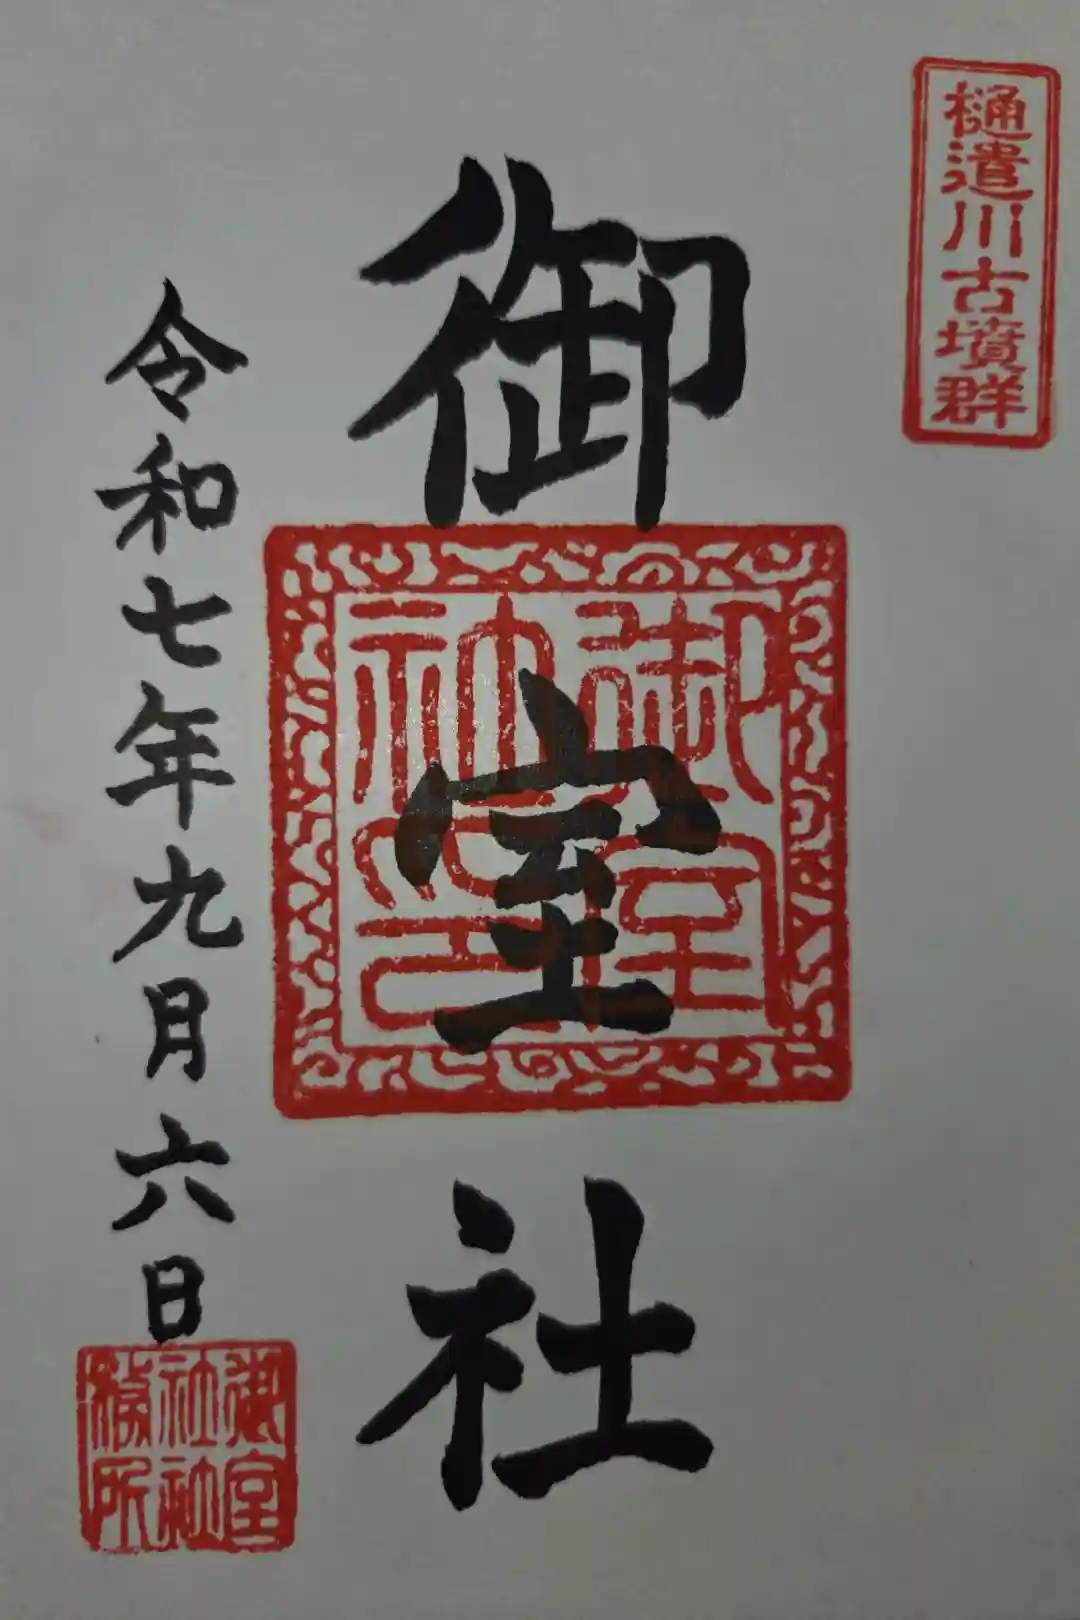 樋遣川古墳群
御室社
御室
神印
令和七年九月六日
御室
社社
務所